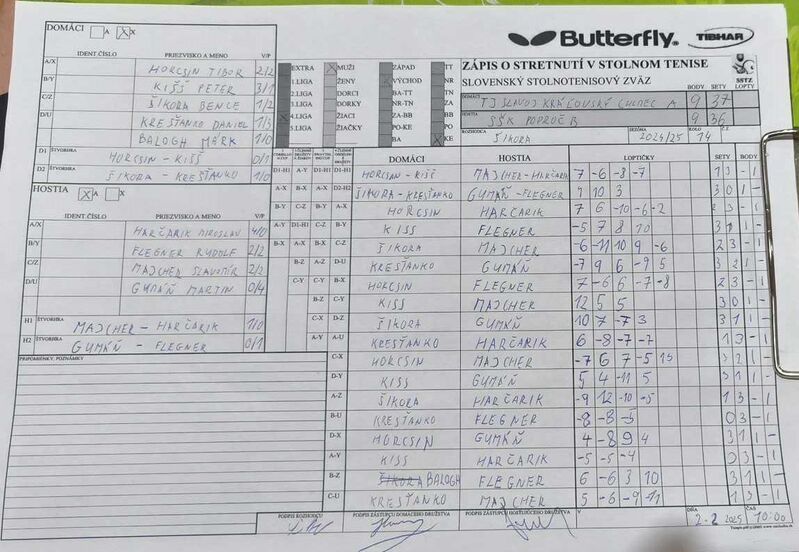 DOMÁCI A X
Butterfly TIBHAR
ZÁPIS O STRETNUTÍ V STOLNOM TENISE
SLOVENSKÝ STOLNOTENISOVÝ ZVÄZ
SSTZ
BODY SETY LOPTY
IDENT.ČÍSLO PRIEZVISKO A MENO V/P
A/X HORCSIN TIBOR 2/2
B/Y KISŠ PETER 3/1
C/Z ŠIKORA BENCE 1/2
D/U KRESŤANKO DANIEL 1/3
BALOGH MÁRK 1/0
D1 ŠTVORHRA HORCSIN - KISŠ 0/1
D2 ŠIKORA - KRESŤANKO 1/0
EXTRA MUŽI ZÁPAD TT
1.LIGA ŽENY VÝCHOD NR
2.LIGA DORCI BA-TT TN
DORKY NR-TN ZA
4.LIGA ŽIACI ZA-BB BB
5.LIGA ŽIAČKY PO-KE PO
BA KE
DOMÁCI TJ SLAVOJ KRÁĽOVSKÝ CHLMEC A 9 37
HOSTIA SŠK POPROČ B 9 36
ROZHODCA ŠIKORA SEZÓNA 2024/25 14 Č.Z.
HOSTIA X A
IDENT.ČÍSLO PRIEZVISKO A MENO V/P
A/X HARČARIK MIROSLAV 4/0
B/Y FLEGNER RUDOLF 2/2
C/Z MAJCHER SLAVOMÍR 2/2
D/U GUMÁŇ MARTIN 0/4
H1 ŠTVORHRA MAJCHER - HARČARIK 1/0
H2 ŠTVORHRA GUMÁŇ - FLEGNER 0/1
PRIPOMIENKY, POZNÁMKY
DOMÁCI HOSTIA LOPTIČKY SETY BODY
D1-H1 A-Y D1-H1 D1-H1 HORCSIN - KISŠ MAJCHER-HARČARIK 7 -6 -8 -7 1 3 - 1
A-X B-X A-X D2-H2 ŠIKORA - KRESŤANKO GUMÁŇ - FLEGNER 9 10 3 3 0 1 -
B-Y C-Z B-Y A-X HORCSIN HARČARIK 7 6 -10 -6 -2 2 3 - 1
A-Y D1-H1 C-Z B-Y KISS FLEGNER -5 7 8 10 3 1 1 -
B-X A-X B-X C-Z ŠIKORA MAJCHER -6 -11 10 9 -6 2 3 - 1
B-Z A-Z D-U KRESŤANKO GUMÁŇ -7 9 6 -9 5 3 2 1 -
C-Y C-Y B-X HORCSIN FLEGNER 7 -6 6 -7 -8 2 3 - 1
B-Z C-Y KISS MAJCHER 12 5 5 3 0 1 -
C-X D-Z ŠIKORA GUMÁŇ 10 7 -7 3 3 1 1 -
A-Y A-U KRESŤANKO HARČARIK 6 -8 -7 -7 1 3 - 1
C-X HORCSIN MAJCHER -7 6 7 -5 13 3 2 1 -
D-Y KISS GUMÁŇ 5 4 -11 5 3 1 1 -
A-Z ŠIKORA HARČARIK -9 12 -10 -5 1 3 - 1
B-U KRESŤANKO FLEGNER -8 -8 -5 0 3 - 1
D-X HORCSIN GUMÁŇ 4 -8 9 4 3 1 1 -
A-Y KISS HARČARIK -5 -5 -4 0 3 - 1
B-Z BALOGH FLEGNER 6 -6 3 10 3 1 1 -
C-U KRESŤANKO MAJCHER 5 -6 -9 -11 1 3 - 1
PODPIS ROZHODCU PODPIS ZÁSTUPCU DOMÁCEHO DRUŽSTVA PODPIS ZÁSTUPCU HOSŤUJÚCEHO DRUŽSTVA DŇA 2.2 2025 ČAS 10:00